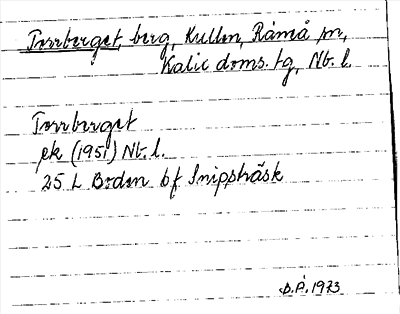 Torrberget, berg, Kullen, Råneå sn,
Kalix doms. tg, Nb. l.
Torrberget
ek (1951) Nb. l.
25 L Boden bf Snippträsk
D.P. 1973